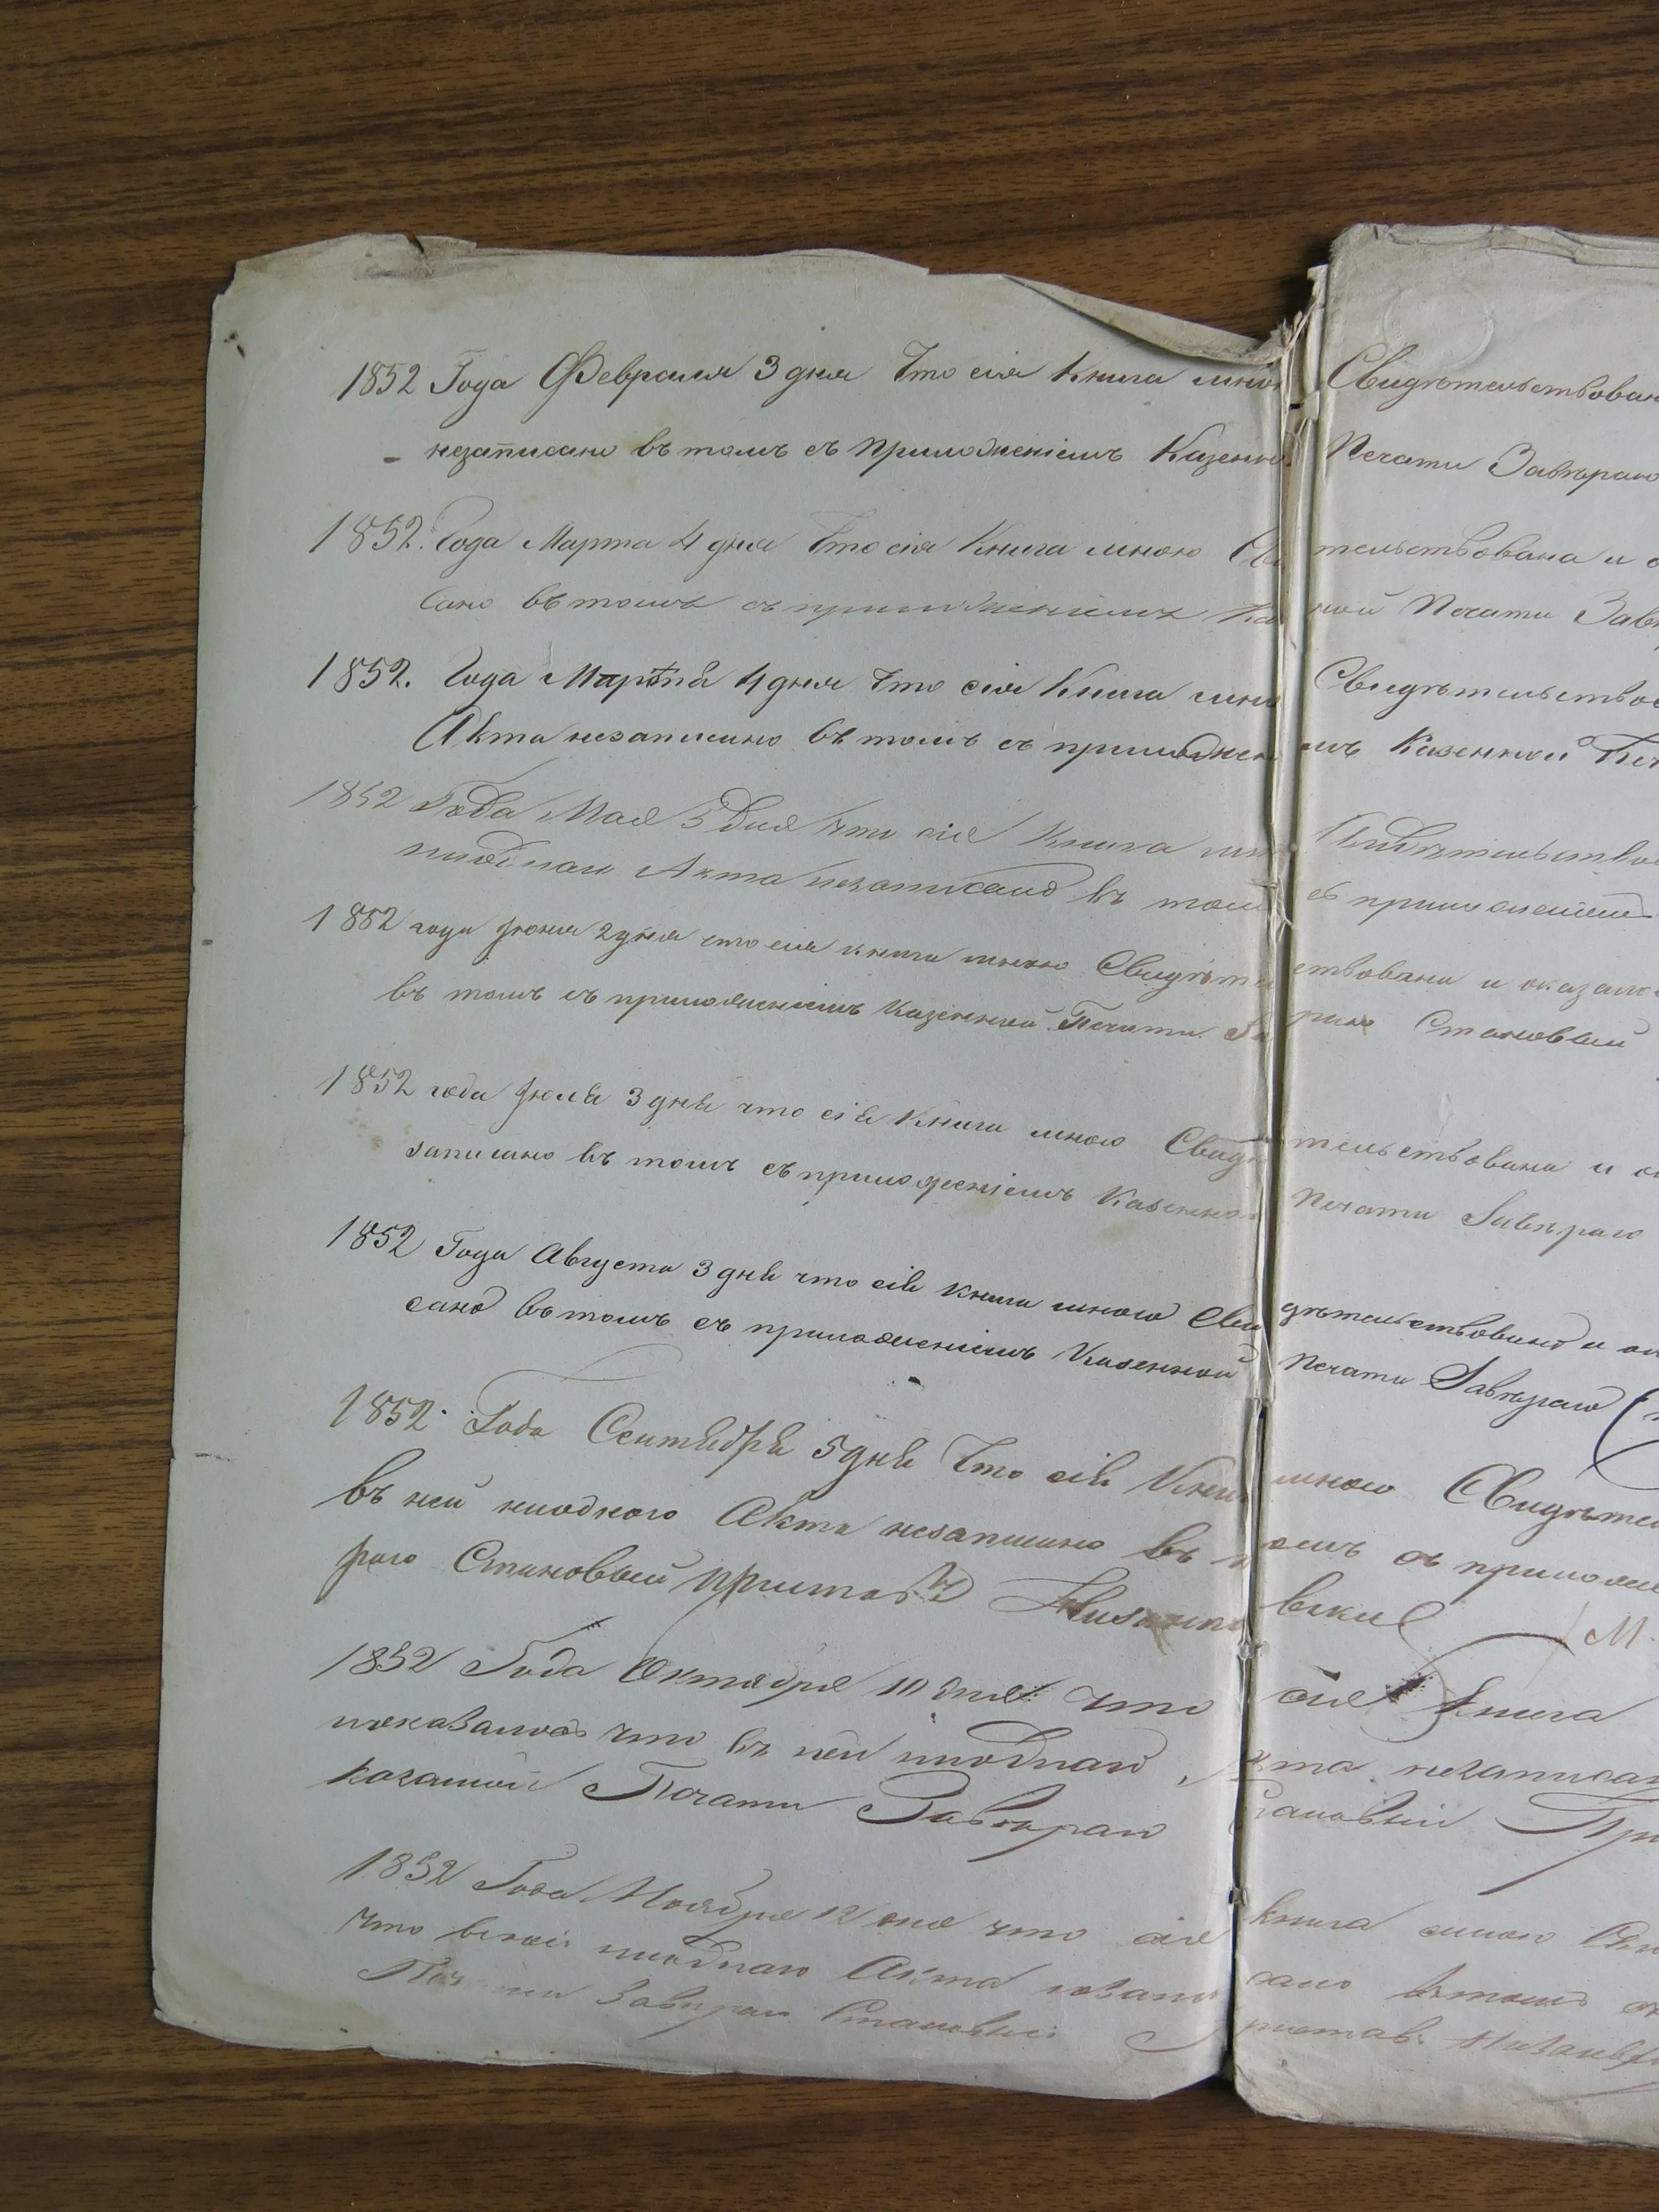 1852 Года Февраля 3 дня Что сія Книга мною Свидѣтельствован
незаписано въ томъ съ Приложеніемъ Казенно Печати Завѣраю
1852. Года Марта 4 дня Что сія Книга мною Сви тельствована и о
сано въ томъ съ приложеніемъ Ка ной Печати Завѣ
1852. Года Марта 4 дня Что сія Книга мн Свидѣтельство
Акта незаписано въ томъ съ приложен мъ Казенной Печ
1852 Года Мая 5 дня что сія Книга мн Свидѣтельство
ниоднаго Акта незаписано въ том съ приложеніем
1852 года Іюня 2 дня что сія книга мною Свидѣт ствована и оказалос
въ томъ съ приложеніемъ Казенной Печати За раю Становый
1852 года Іюля 3 дня что сія Книга мною Свидѣ тельствована и о
записано въ томъ съ приложеніемъ Казенно Печати Завѣраю
1852 Года Августа 3 дня что сія Книга мною Сви дѣтельствована и ок
сано въ томъ съ приложеніемъ Казенной Печати Завѣраю
1852. Года Сентября 5 дня Что сія Кни мною Свидѣте
въ ней ниодного Акта незаписано въ т омъ съ приложе
раю Становый Приставъ М.
1852 Года Октября 10 дня что сія Книга
иоказалось что въ ней ниоднаго Акта незаписан
казенной Печати Завѣраю Становый При
1852 Года Ноября 12 дня что сія книга мною Сви
что вней ниоднаго Акта незапи сано втомъ съ
Печати Завѣраю Становый Приставъ